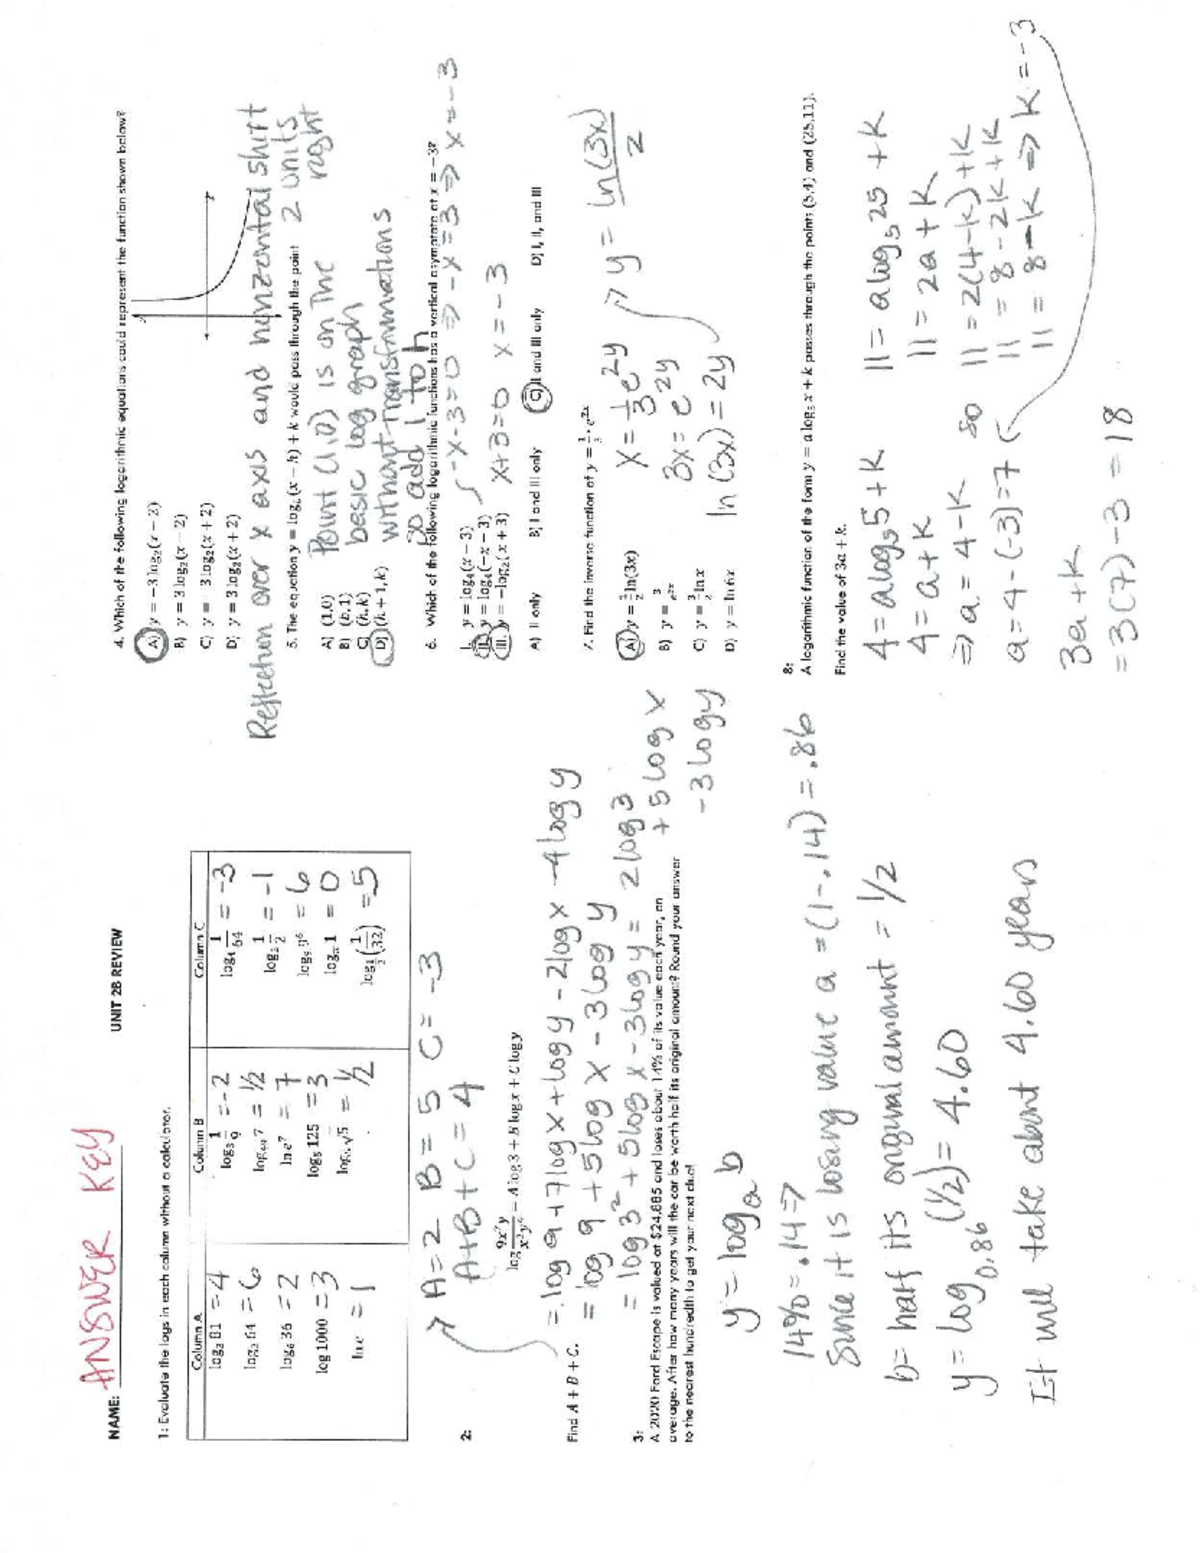 NAME: ANSWER KEY UNIT 2B REVIEW
1: Evaluate the logs in each column without a calculator.
Column A Column B Column C
log₃ 81 = 4 log₃ 1/9 = -2 log₄ 1/64 = -3
log₂ 64 = 6 log₄₉ 7 = 1/2 log₂ 1/2 = -1
log₆ 36 = 2 ln e⁷ = 7 log₉ 9⁶ = 6
log 1000 = 3 log₅ 125 = 3 1 = 0
ln e = 1 √5 = 1/2 (1/32) = 5
2:
A=2 B=5 C=-3
A+B+C=4
log 9x⁷y = A log 3 + B log x + C log y
Find A + B + C.
= log 9 + 7log x + log y - 2log x - 4log y
= log 9 + 5log x - 3log y
= log 3² + 5log x - 3log y = 2log 3
+ 5log x
- 3log y
3:
A 2020 Ford Escape is valued at $24,885 and loses about 14% of its value each year, on
average. After how many years will the car be worth half its original amount? Round your answer
to the nearest hundredth to get your next clue!
y = log_a b
14% = .14 ⇒
Since it is losing value a = (1-.14) = .86
b = half its original amount = 1/2
y = log_0.86 (1/2) = 4.60
It will take about 4.60 years
4. Which of the following logarithmic equations could represent the function shown below?
A) y = -3 log₂(x - 2)
B) y = 3 log₂(x - 2)
C) y = -3 log₂(x + 2)
D) y = 3 log₂(x + 2)
Reflection over x axis and horizontal shift
2 units
right
5. The equation y = log_b (x - h) + k would pass through the point
A) (1,0)
B) (b,1)
C) (h,k)
D) (h + 1,k)
Point (1,0) is on the
basic log graph
without transformations
so add 1 to h
6. Which of the following logarithmic functions has a vertical asymptote at x = -3?
I. y = log₄(x - 3)
II. y = log₄(-x - 3)
III. y = -log₂(x + 3)
-x-3=0 ⇒ -x=3 ⇒ x=-3
x+3=0 x=-3
A) II only B) I and III only C) II and III only D) I, II, and III
7. Find the inverse function of y = 1/3 · e²ˣ
A) y = 1/2 ln(3x)
B) y = 3/e²ˣ
C) y = 3/2 ln x
D) y = ln 6x
x = 1/3 e^2y
3x = e^2y
ln(3x) = 2y
y = ln(3x)/2
8:
A logarithmic function of the form y = a log₅ x + k passes through the points (5,4) and (25,11).
Find the value of 3a + k.
4 = a log₅ 5 + k
4 = a + k
⇒ a = 4 - k so
a = 4 - (-3) = 7
11 = a log₅ 25 + k
11 = 2a + k
11 = 2(4-k) + k
11 = 8 - 2k + k
11 = 8 - k ⇒ k = -3
3a + k
= 3(7) - 3 = 18